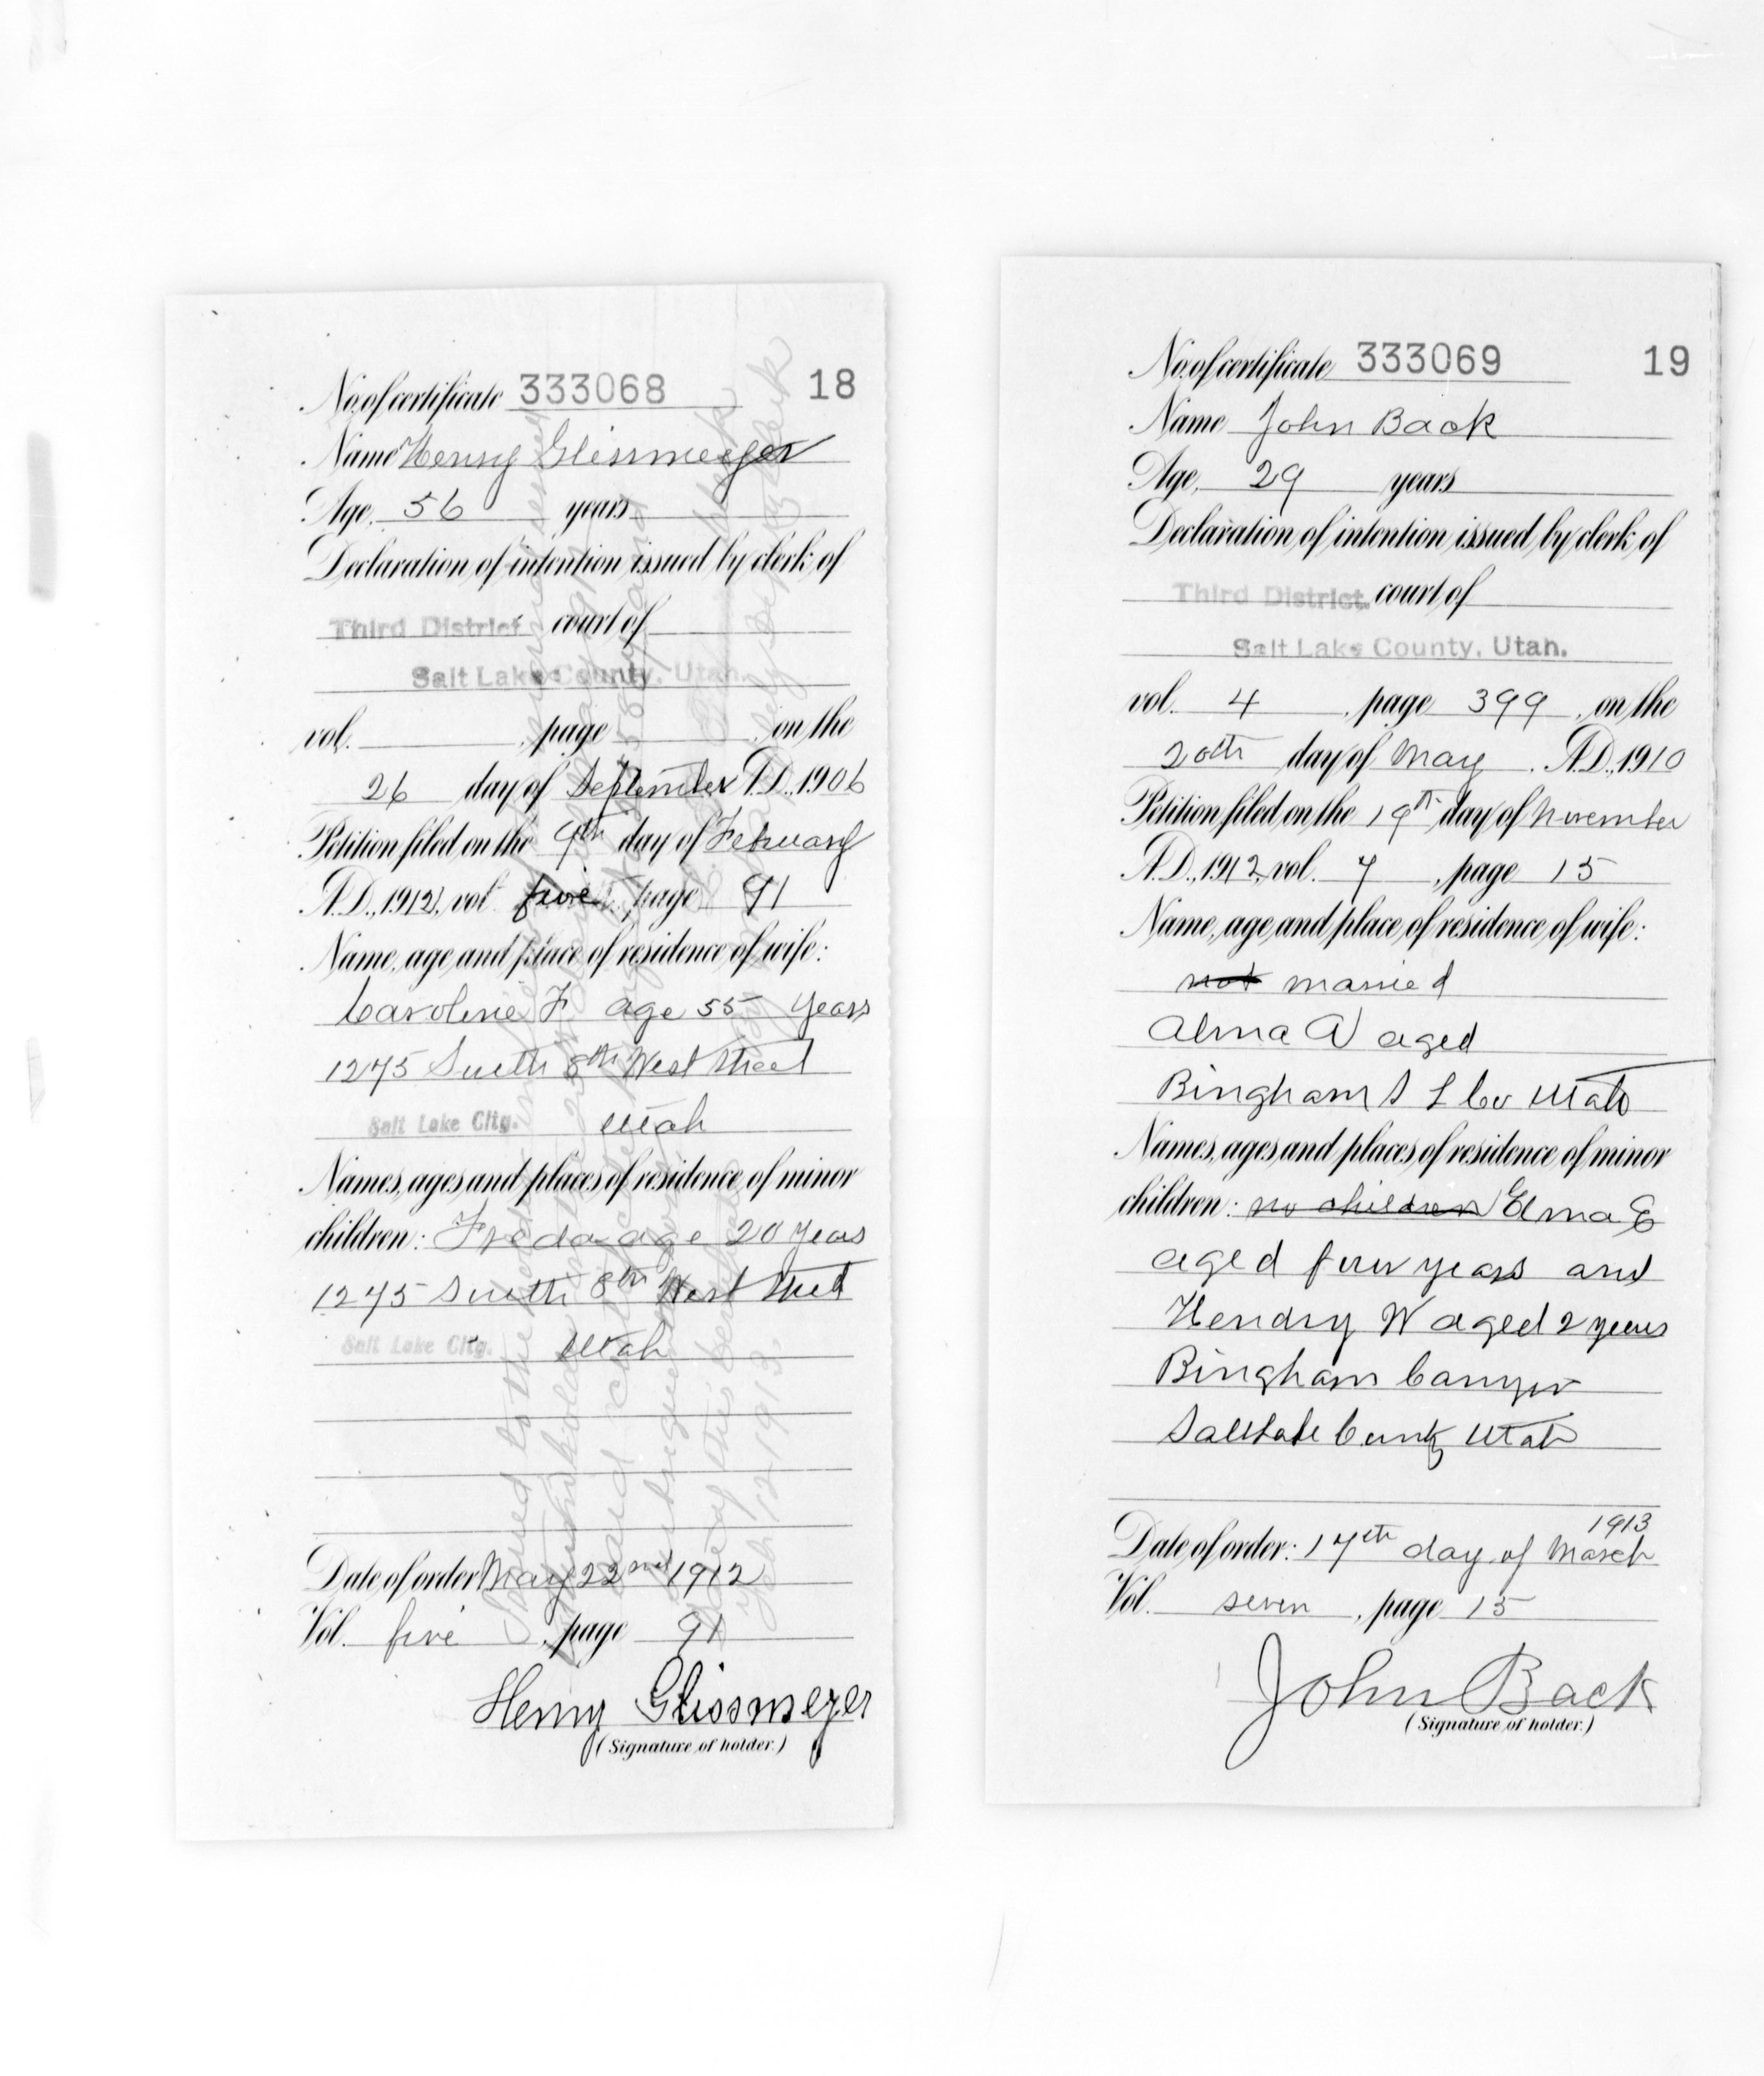 No. of certificate 333068 18
Name Henry Glissmeyer
Age, 56 years
Declaration of intention issued by clerk of
Third District court of
Salt Lake County, Utah.
vol. , page , on the
26 day of September A.D., 1906
Petition filed on the 9th day of February
A.D., 1912, vol. five, page 91
Name, age and place of residence of wife:
Caroline F age 55 years
1275 South 8th West Street
Salt Lake City. Utah
Names, ages and places of residence of minor
children: Freda age 20 years
1275 South 8th West Street
Salt Lake City. Utah
Date of order May 22nd 1912
Vol. five, page 91
Henry Glissmeyer
(Signature of holder.)
No. of certificate 333069 19
Name John Back
Age, 29 years
Declaration of intention issued by clerk of
Third District. court of
Salt Lake County, Utah.
vol. 4, page 399, on the
20th day of May, A.D., 1910
Petition filed on the 19th day of November
A.D., 1912, vol. 7, page 15
Name, age and place of residence of wife:
not married
Alma A aged
Bingham S L Co Utah
Names, ages and places of residence of minor
children: no children Elma E
aged four years and
Hendry W aged 2 years
Bingham Canyon
Saltlake County Utah
1913
Date of order: 17th day of March
Vol. seven, page 15
John Back
(Signature of holder.)